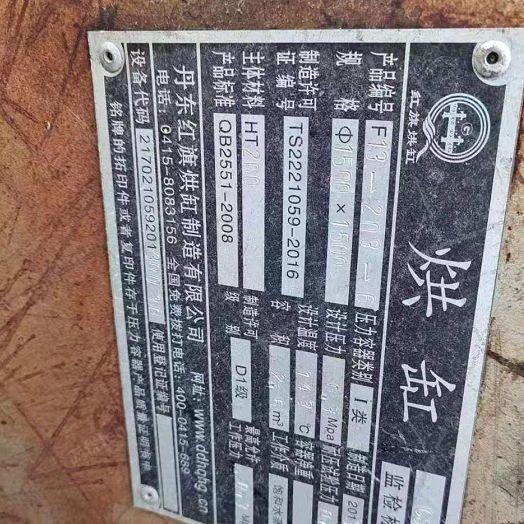 红旗烘缸
烘缸
产品编号 压力容器类别 I类 制造日期 201
规格 Φ1500×1500 设计压力 Mpa 耐压试验压力
制造许可证编号 TS2221059-2016 设计温度 容器净重
主体材料 HT200 容积 m³ 工作介质 饱和水蒸
产品标准 QB2551-2008 制造许可级别 D1级 最高允许工作压力
监检
丹东红旗烘缸制造有限公司 网址:www.ddhqhg.cn
电话:0415-8083156 全国免费拨打电话:400-0415-689
设备代码 使用登记证编号
铭牌的拓印件或者复印件存于压力容器产品质量证明书中